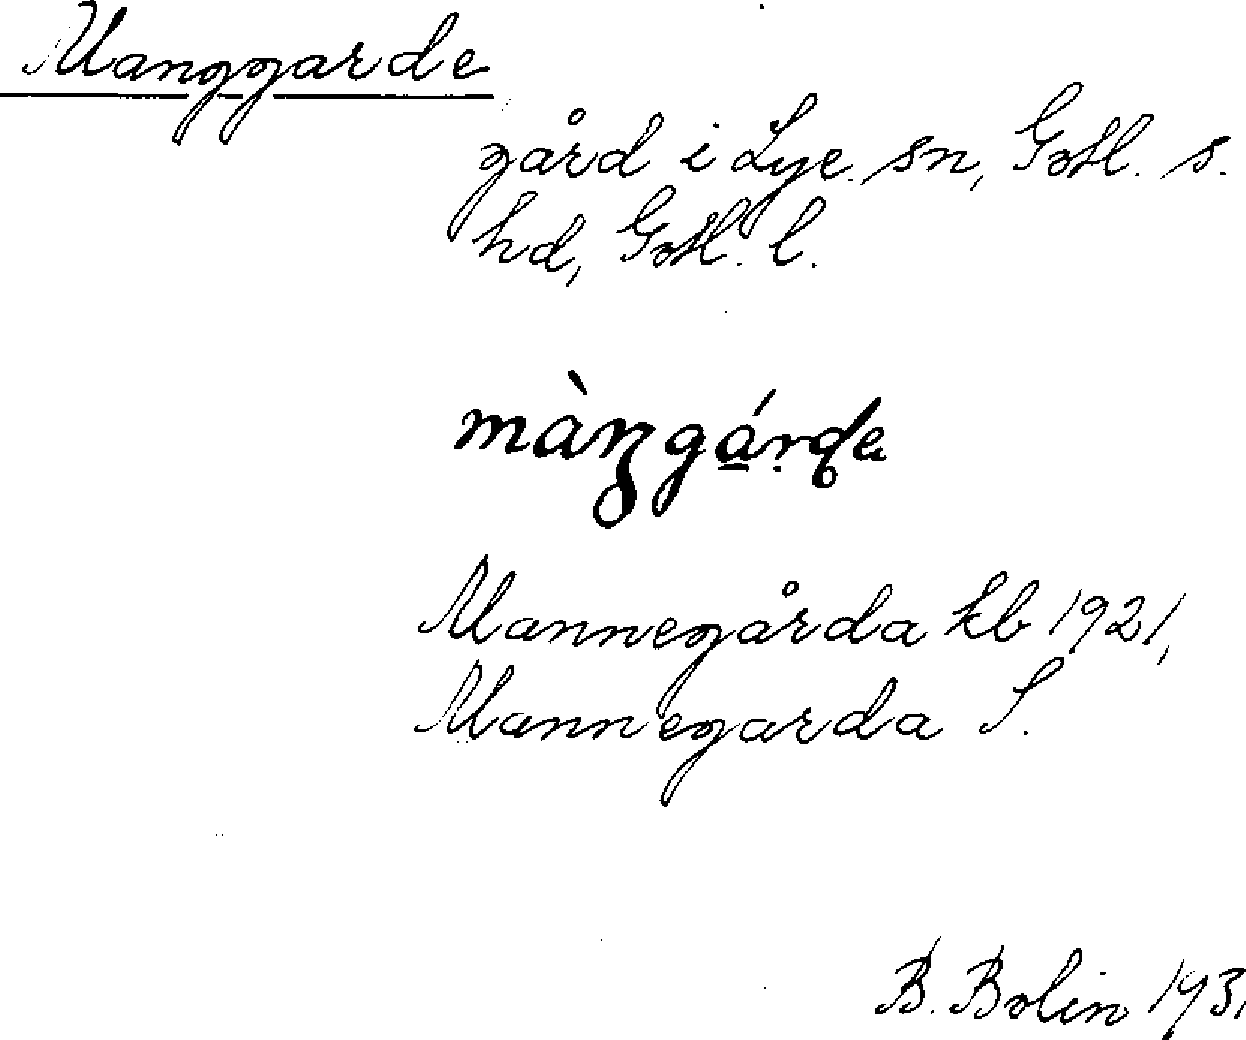 Manggarde
gård i Lye sn, Gotl. s.
hd, Gotl. l.
màŋgárde
Mannegårda kb 1921,
Mannegarda S.
B. Bolin 1931